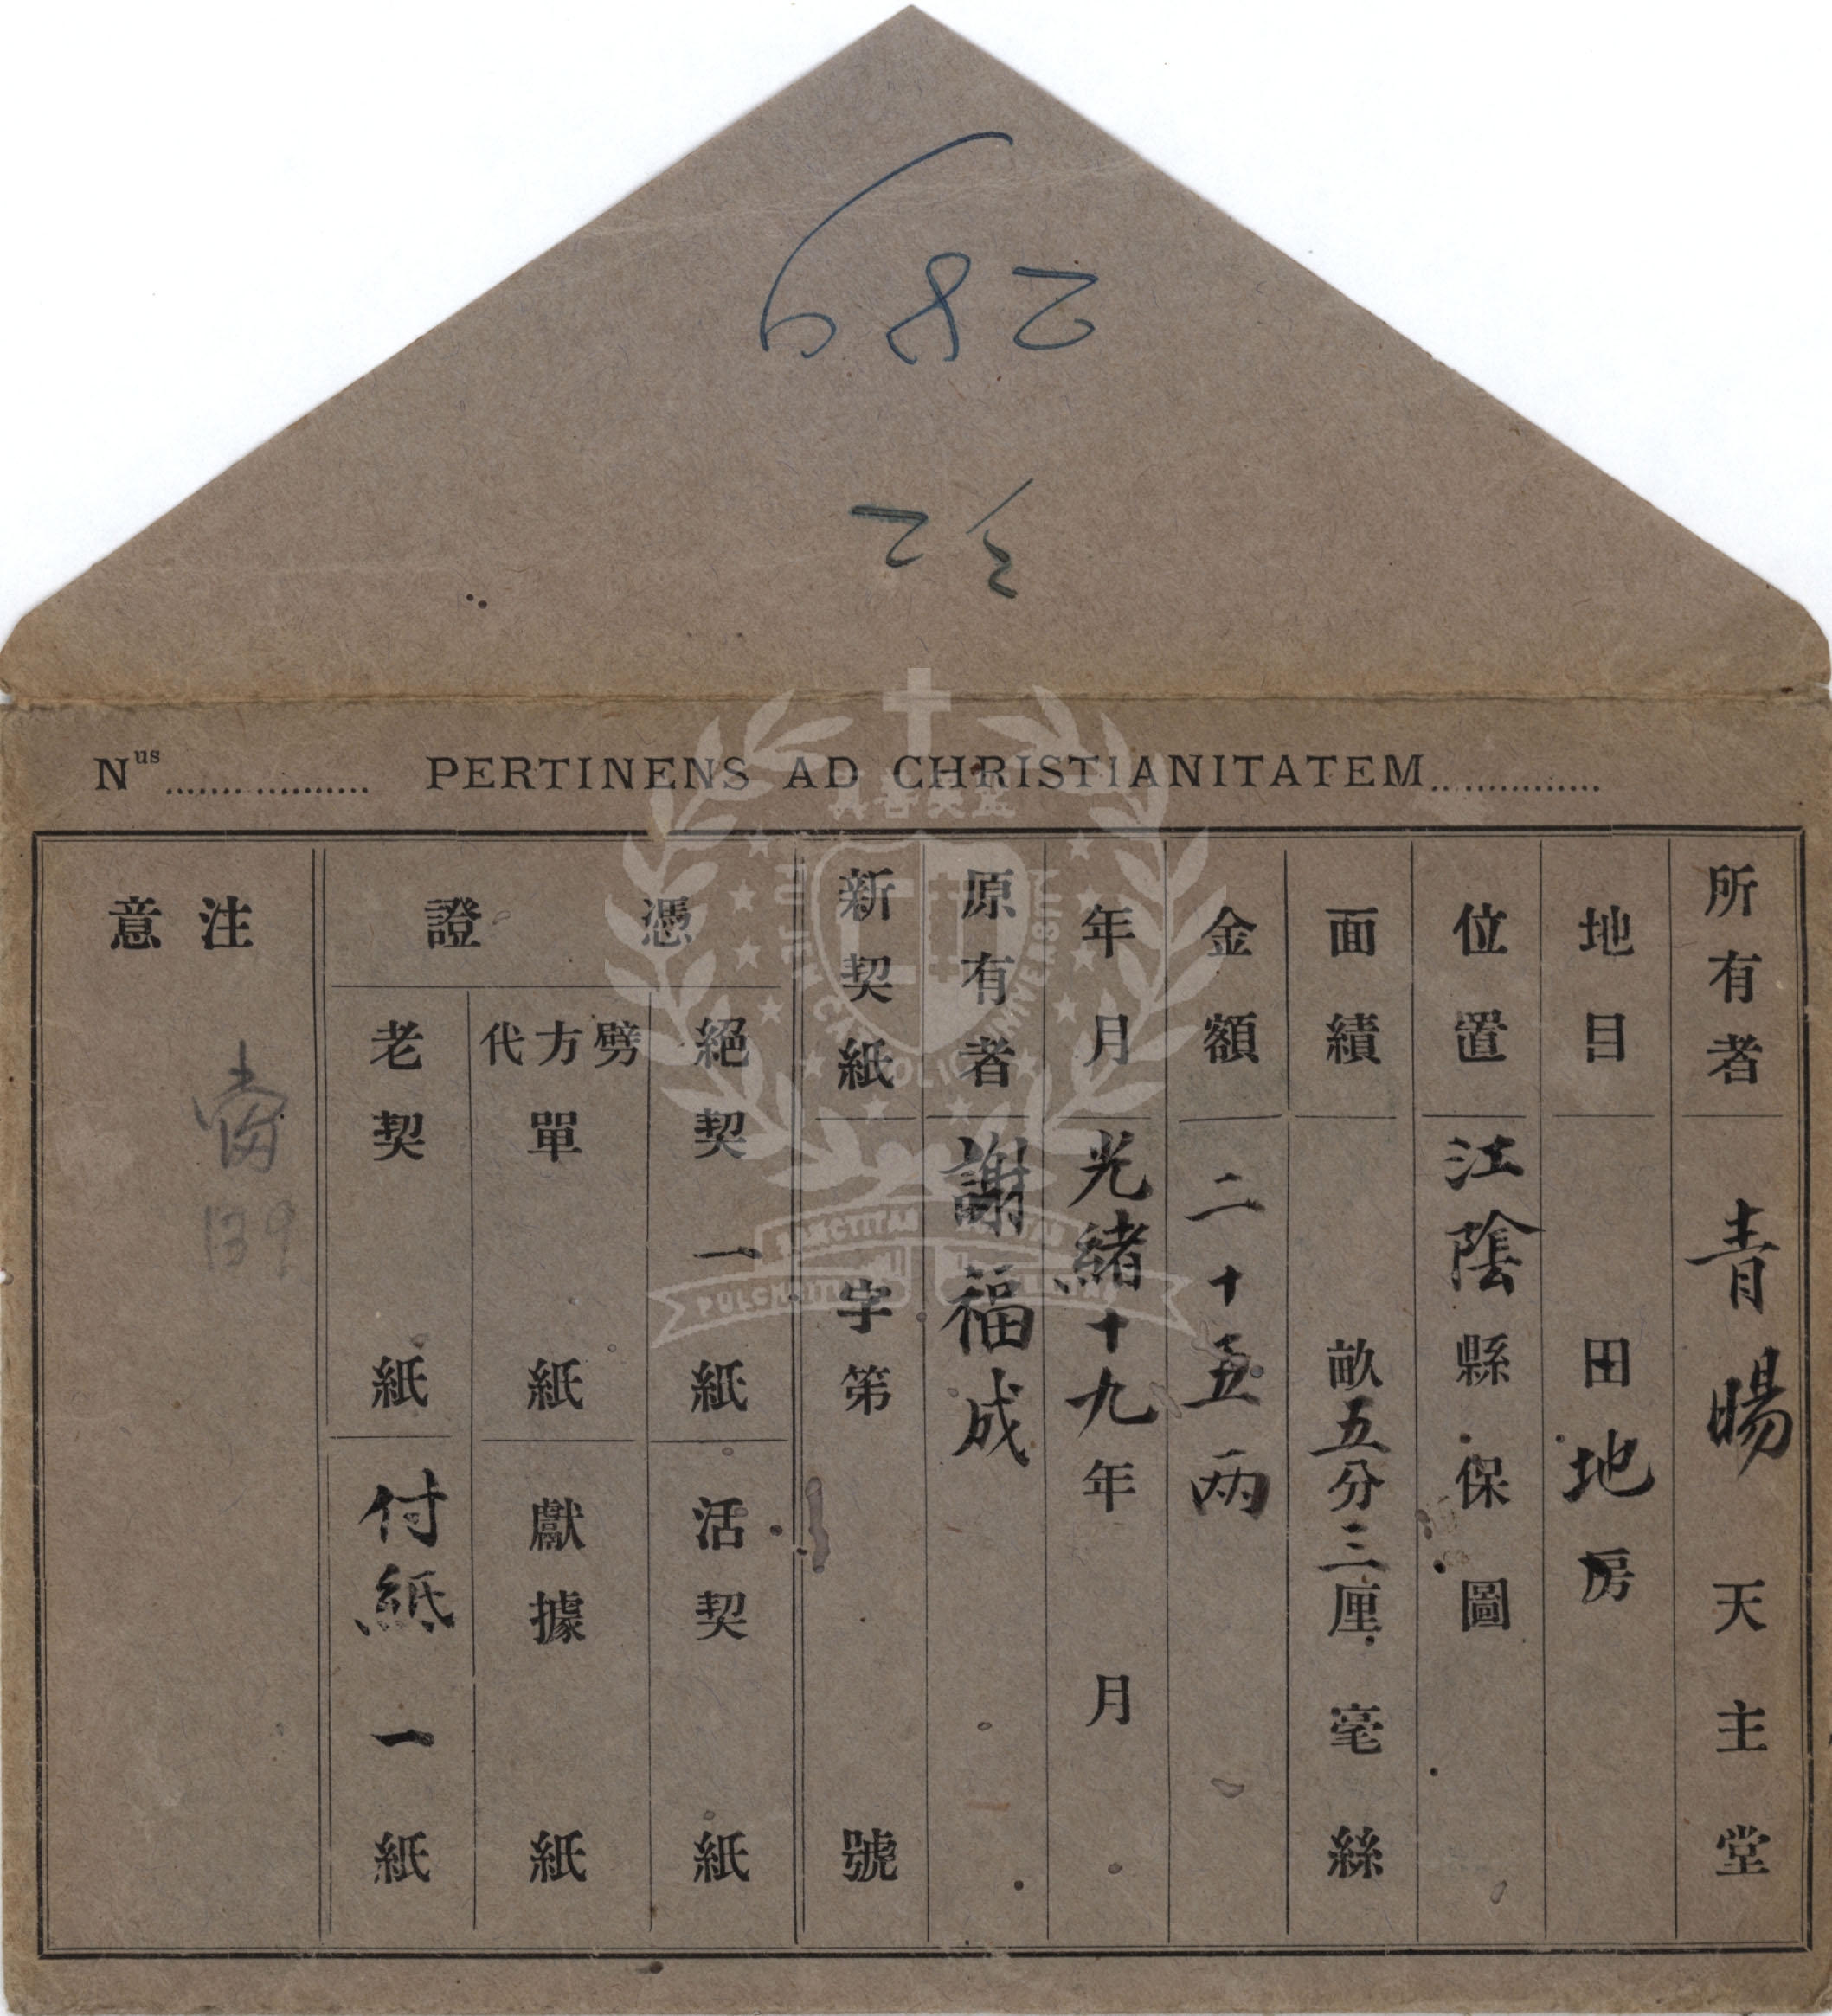 289
N^us ................. PERTINENS AD CHRISTIANITATEM...............
所有者 青暘 天主堂
地目 田地房
位置 江陰縣保圖
面績 畝五分三厘毫絲
金額 二十五兩
年月 光緒十九年 月
原有者 謝福成
新契紙 字第 號
憑證
絕契 一紙
活契 紙
劈方代單 紙
獻據 紙
老契 紙
付紙 一紙
注意
139